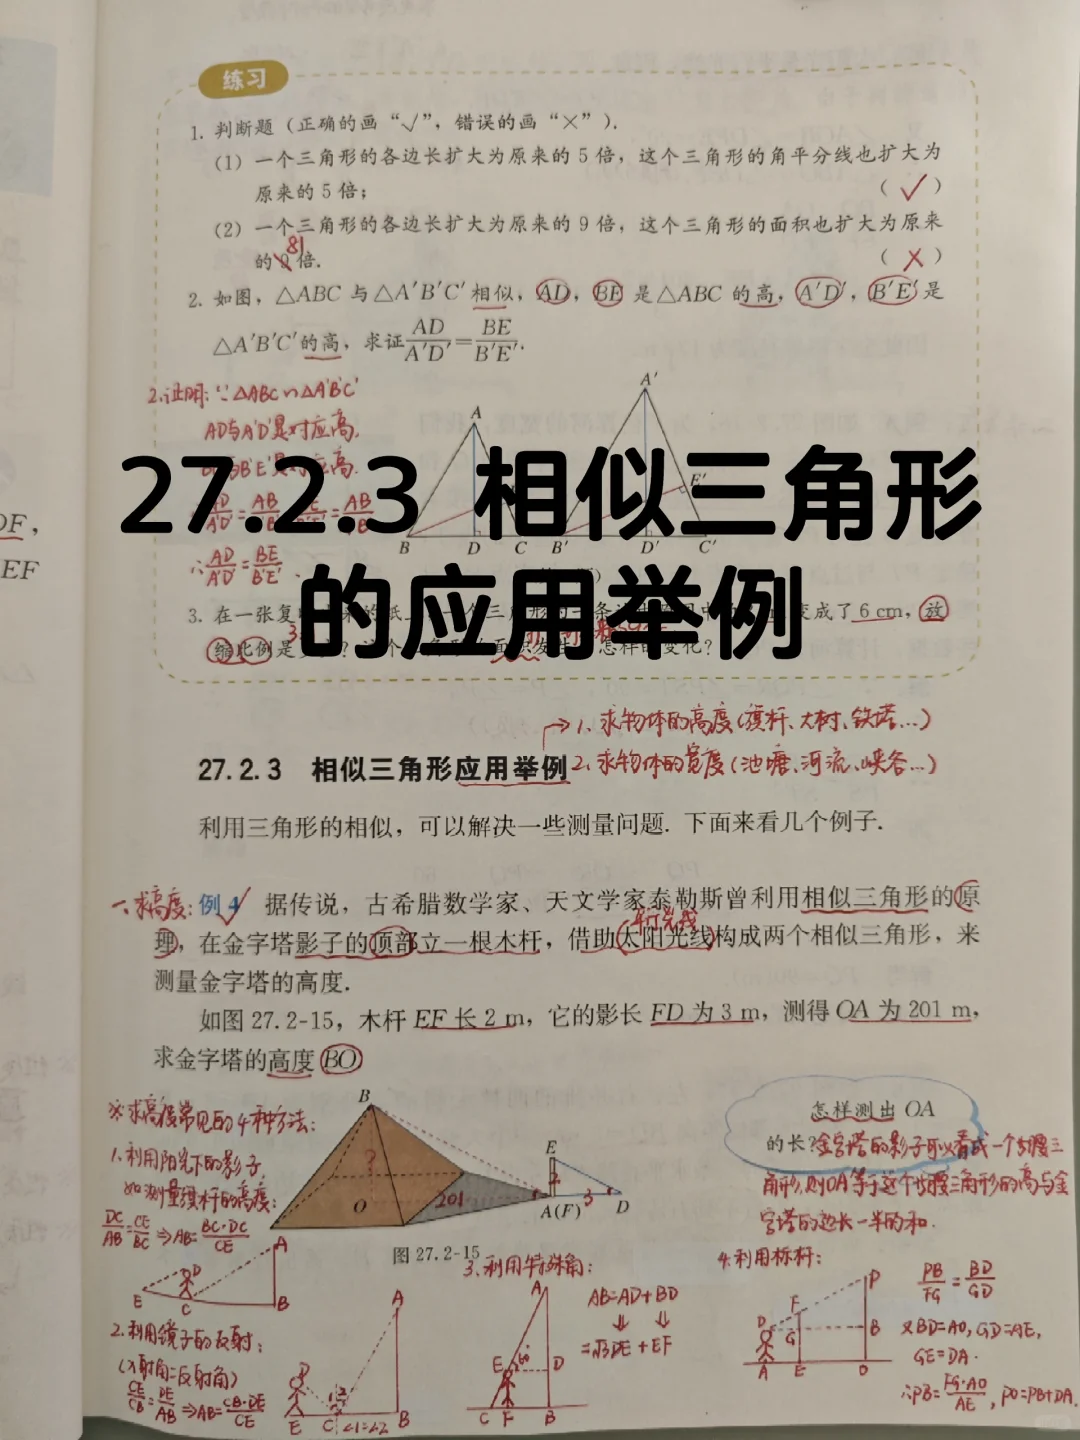 练习
1. 判断题（正确的画“√”，错误的画“×”）.
（1）一个三角形的各边长扩大为原来的 5 倍，这个三角形的角平分线也扩大为
原来的 5 倍； （√）
（2）一个三角形的各边长扩大为原来的 9 倍，这个三角形的面积也扩大为原来
81
的 9 倍. （×）
2. 如图，△ABC 与△A′B′C′相似，AD，BE 是△ABC 的高，A′D′，B′E′是
△A′B′C′的高，求证AD/A′D′=BE/B′E′.
2.证明：∵△ABC∽△A′B′C′
AD与A′D′是对应高.
与B′E′是对应高.
∴AD/A′D′=BE/B′E′.
A
B D C
A′
B′ D′ C′
27.2.3 相似三角形
的应用举例
3. 在一张复
变成了 6 cm，放
缩比例是
面积发生
怎样的变化？
→1、求物体的高度(旗杆、大树、铁塔…)
27.2.3 相似三角形应用举例
2、求物体的宽度(池塘、河流、峡谷…)
利用三角形的相似，可以解决一些测量问题. 下面来看几个例子.
一、求高度：例 4 √ 据传说，古希腊数学家、天文学家泰勒斯曾利用相似三角形的原
平行光线
理，在金字塔影子的顶部立一根木杆，借助太阳光线构成两个相似三角形，来
测量金字塔的高度.
如图 27.2-15，木杆 EF 长 2 m，它的影长 FD 为 3 m，测得 OA 为 201 m，
求金字塔的高度 BO
※求高度常见的4种方法：
1、利用阳光下的影子，
如测量旗杆的高度：
DC/AB=CE/BC⇒AB=BC·DC/CE
A
D
E C B
B
?
O 201
E
2
A(F) 3 D
图 27.2-15
怎样测出 OA
的长？金字塔的影子可以看成一个等腰三
角形，则OA等于这个等腰三角形的高与金
字塔的边长一半的和.
2、利用镜子的反射：
(入射角=反射角)
CE/CB=DE/AB⇒AB=CB·DE/CE
A
D
1 2
E C B
∠1=∠2
3、利用特殊角：
A
E 60° D
C F B
AB=AD+BD
⇓ ⇓
=√3DE+EF
4、利用标杆：
P
F
D G B
A E O
PB/FG=BD/GD
又BD=AO，GD=AE，
GE=DA.
∴PB=FG·AO/AE，PO=PB+DA.